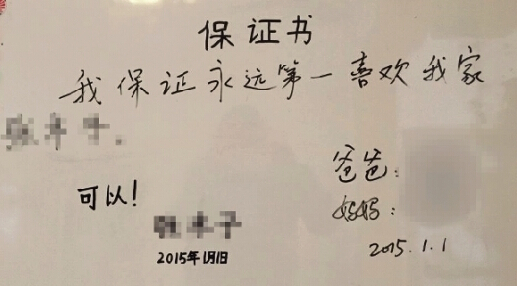 保证书
我保证永远第一喜欢我家
爸爸：
可以！
妈妈：
2015年1月1日
2015.1.1